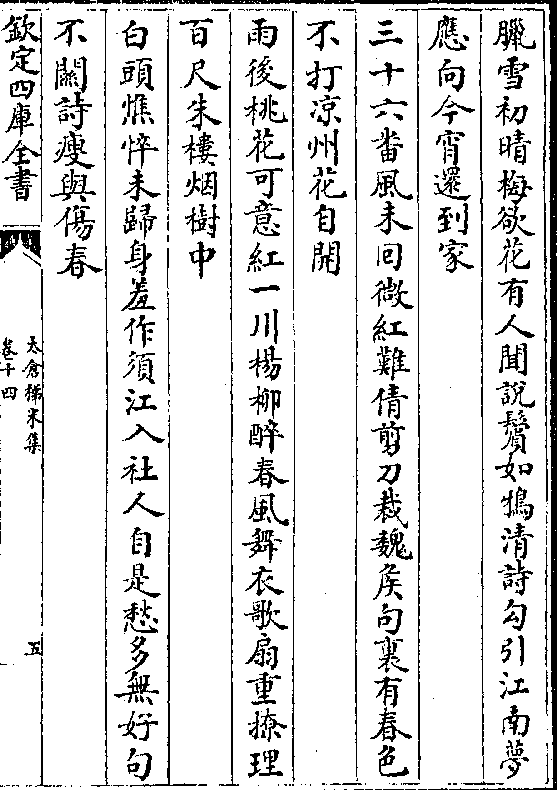 臘雪初晴梅欲花有人聞說鬢如鴉清詩勾引江南夢
應向今宵還到家
三十六番風未回微紅難倩剪刀裁魏侯句裏有春色
不打凉州花自開
雨後桃花可意紅一川楊柳醉春風舞衣歌扇重撩理
百尺朱樓烟樹中
白頭憔悴未歸身羞作須江入社人自是愁多無好句
不關詩瘦與傷春
欽定四庫全書
太倉稊米集
卷十四
五